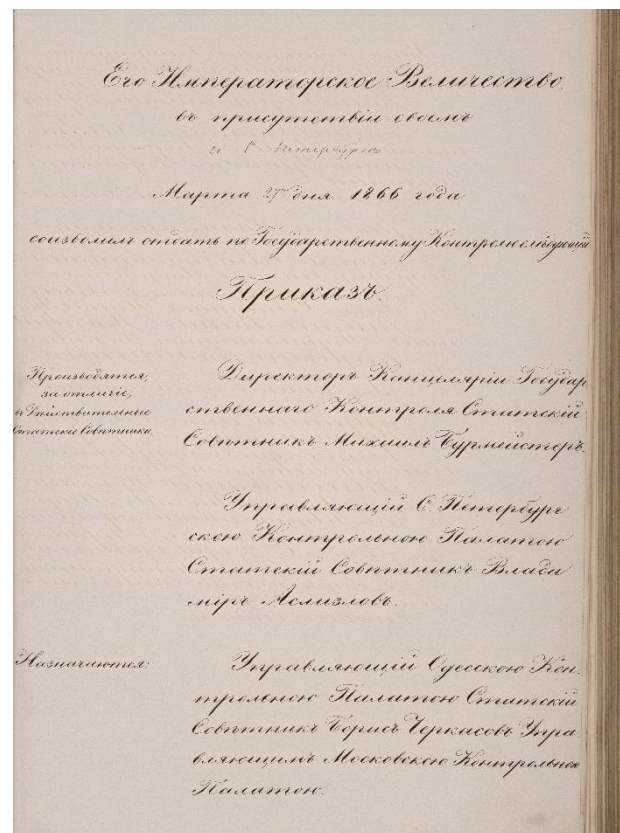 Его Императорское Величество,
въ присутствіи своемъ
въ С. Петербургѣ
Марта 27го дня 1866 года
соизволилъ отдать по Государственному Контролю слѣдующій
Приказъ.
Производятся,
за отличіе,
въ Дѣйствительные
Статскіе Совѣтники
Директоръ Канцеляріи Государ
ственнаго Контроля Статскій
Совѣтникъ Михаилъ Бурмейстеръ.
Управляющій С. Петербург
скою Контрольною Палатою
Статскій Совѣтникъ Влади
міръ
Назначаются:
Управляющій Одесскою Кон-
трольною Палатою Статскій
Совѣтникъ Борисъ Черкасовъ Упра
вляющимъ Московскою Контрольною
Палатою.